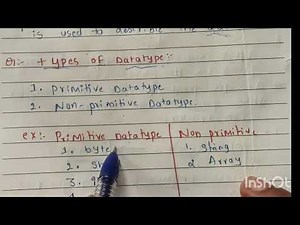 is used to describe the
Q:- types of Datatype:-
1. primitive Datatype
2. Non-primitive Datatype
ex:- Primitive Datatype
Non primitive
1. byte
1. string
2. Array
2. Sh
3.
InShot